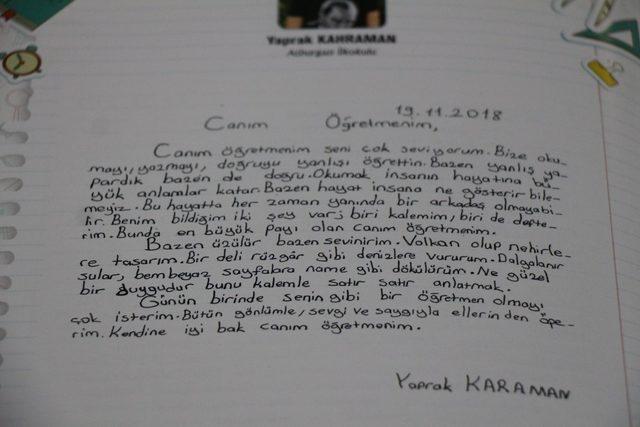 Yaprak KAHRAMAN
Aliburgaz İlkokulu
19.11.2018
Canım Öğretmenim,
Canım öğretmenim seni çok seviyorum. Bize oku-
mayı, yazmayı, doğruyu yanlışı öğrettin. Bazen yanlış ya-
pardık bazen de doğru. Okumak insanın hayatına bü-
yük anlamlar katar. Bazen hayat insana ne gösterir bile-
meyiz. Bu hayatta her zaman yanında bir arkadaş olmayabi-
lir. Benim bildiğim iki şey var; biri kalemim, biri de defte-
rim. Bunda en büyük payı olan canım öğretmenim.
Bazen üzülür bazen sevinirim. Volkan olup nehirle-
re taşarım. Bir deli rüzgar gibi denizlere vururum. Dalgalanır
sular, bembeyaz sayfalara name gibi dökülürüm. Ne güzel
bir duygudur bunu kalemle satır satır anlatmak.
Günün birinde senin gibi bir öğretmen olmayı
çok isterim. Bütün gönlümle, sevgi ve saygıyla ellerinden öpe-
rim. Kendine iyi bak canım öğretmenim.
Yaprak KARAMAN